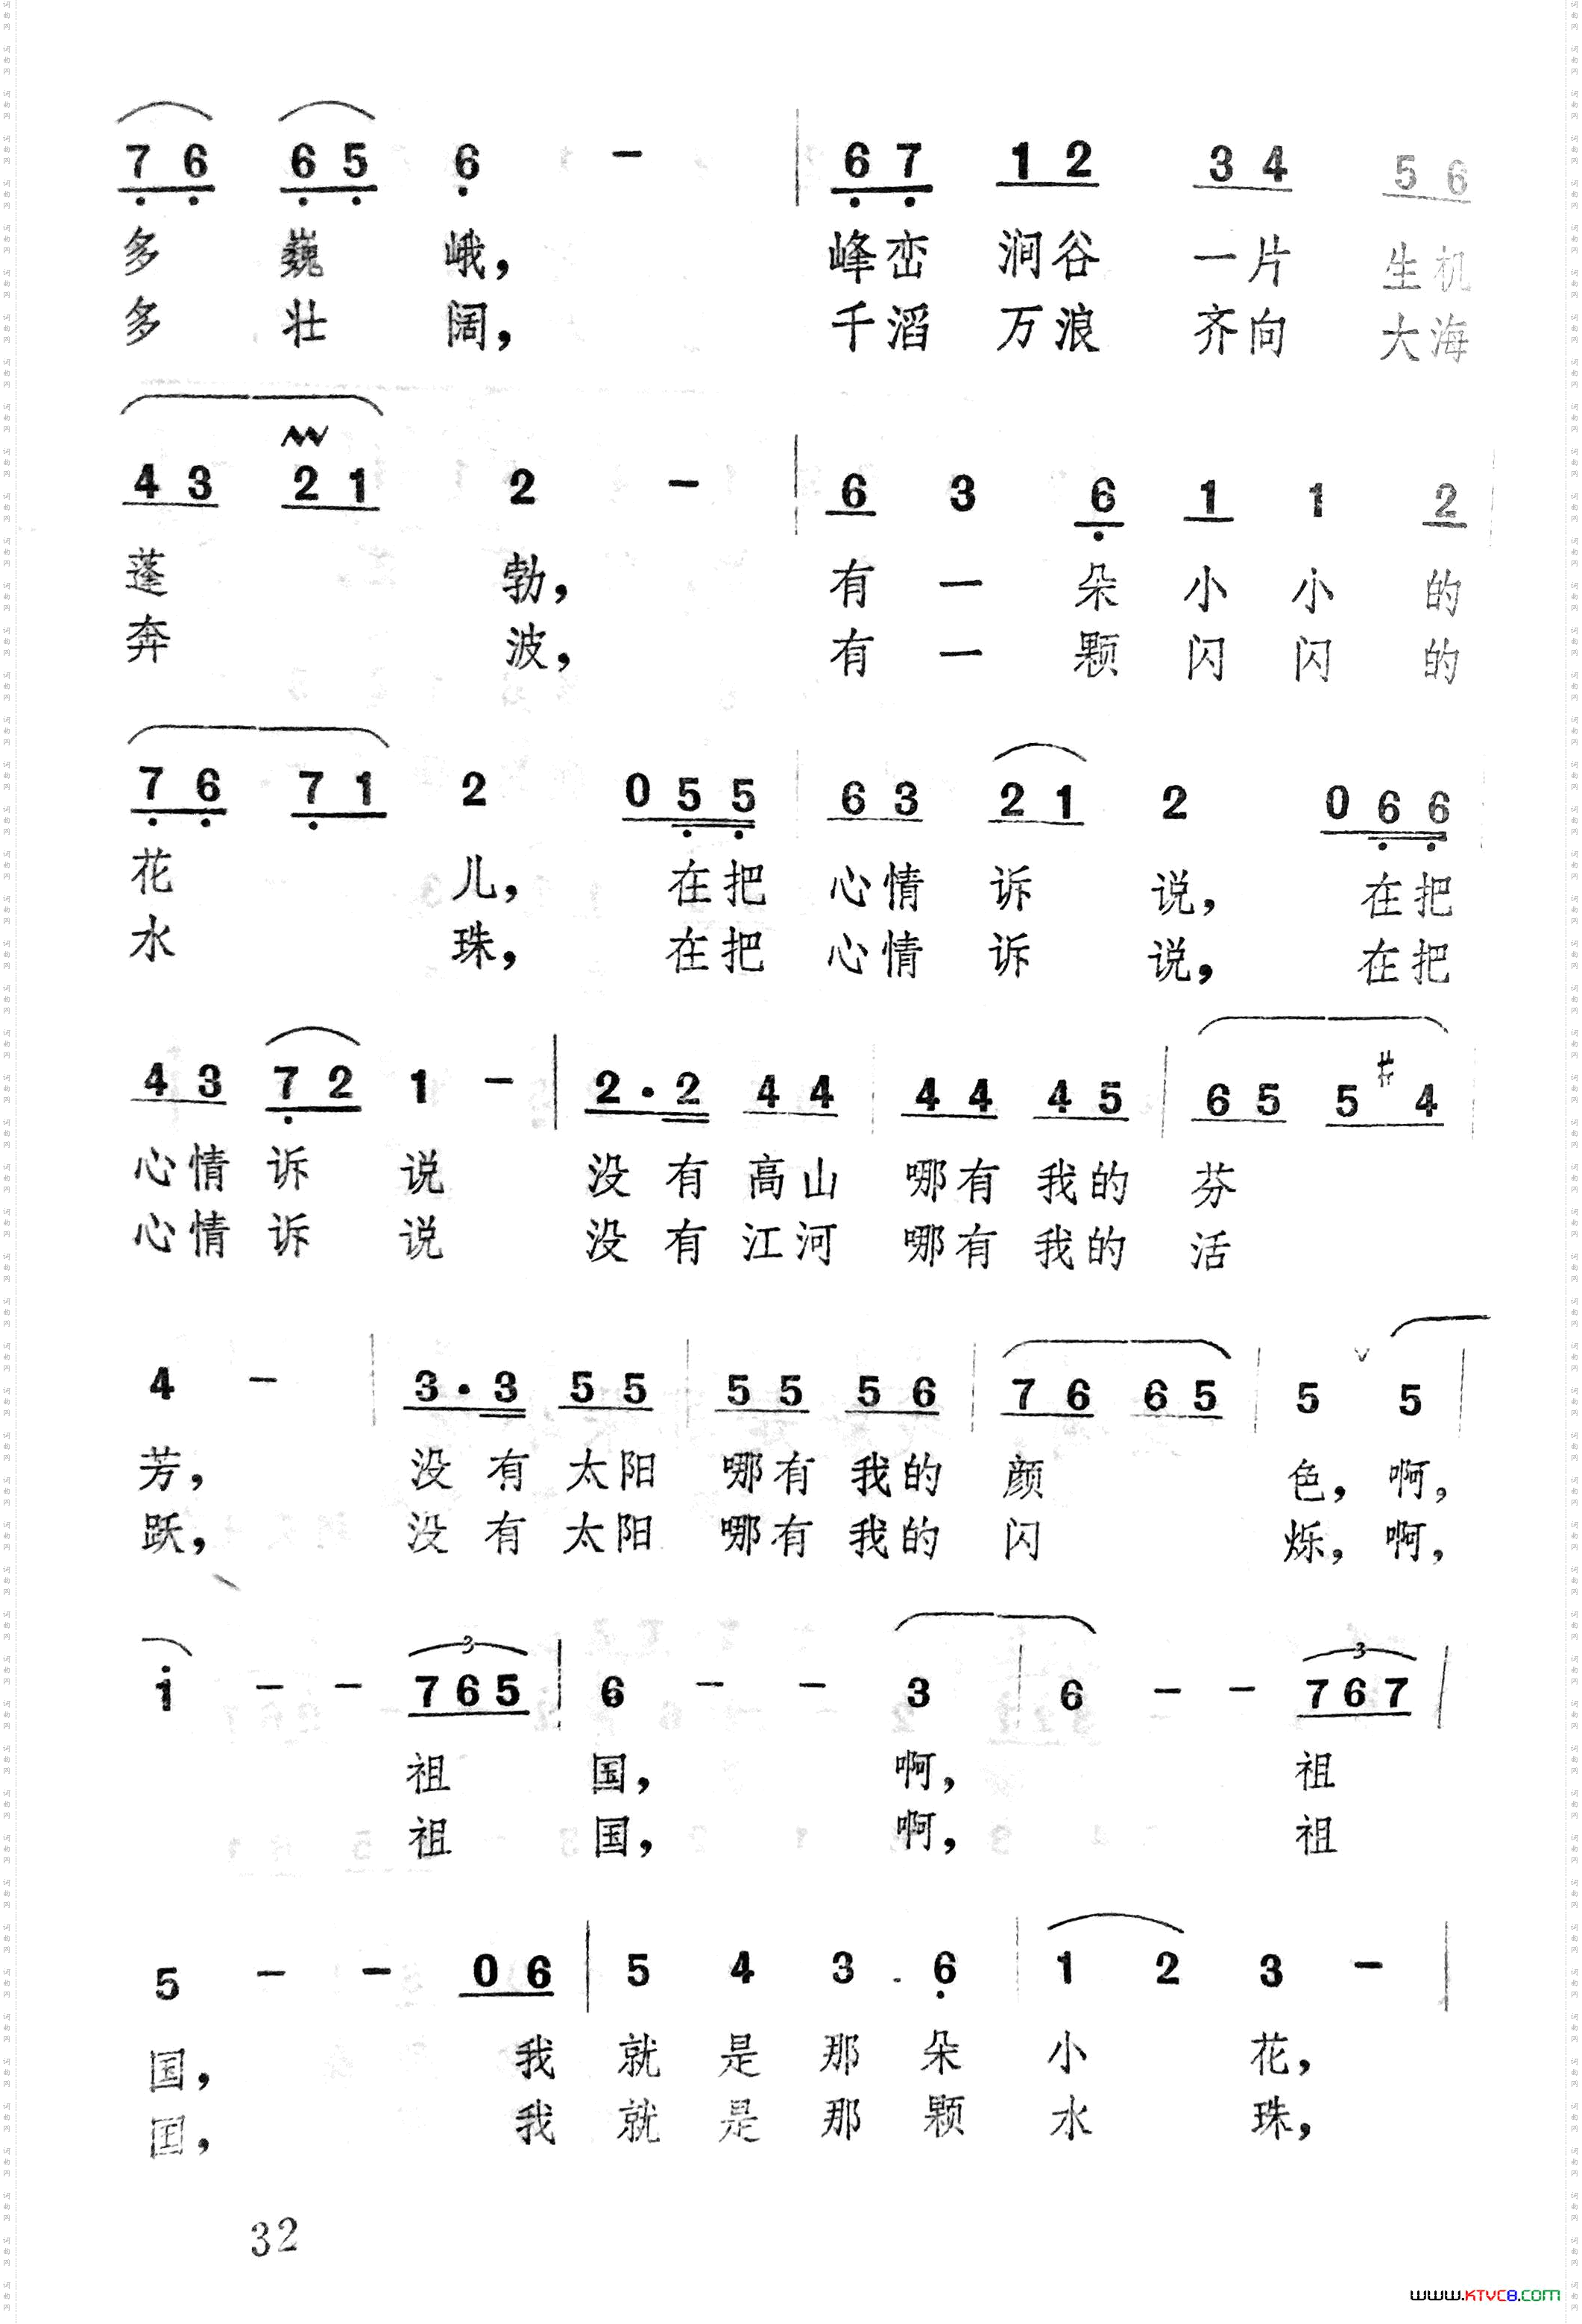 7 6 6 5 6 - | 6 7 1 2 3 4 5 6
多 巍 峨， 峰峦 涧谷 一片 生机
多 壮 阔， 千滔 万浪 齐向 大海
4 3 2 1 2 - | 6 3 6 1 1 2
蓬 勃， 有 一 朵 小 小 的
奔 波， 有 一 颗 闪 闪 的
7 6 7 1 2 0 5 5 | 6 3 2 1 2 0 6 6
花 儿， 在把 心情 诉 说， 在把
水 珠， 在把 心情 诉 说， 在把
4 3 7 2 1 - | 2 · 2 4 4 | 4 4 4 5 | 6 5 5 #4
心情 诉 说 没 有 高山 哪有 我的 芬
心情 诉 说 没 有 江河 哪有 我的 活
4 - | 3 · 3 5 5 | 5 5 5 6 | 7 6 6 5 | 5 5 |
芳， 没 有 太阳 哪有 我的 颜 色， 啊，
跃， 没 有 太阳 哪有 我的 闪 烁， 啊，
3 3
1 - - 7 6 5 | 6 - - 3 | 6 - - 7 6 7 |
祖 国， 啊， 祖
祖 国， 啊， 祖
5 - - 0 6 | 5 4 3 . 6 | 1 2 3 - |
国， 我 就 是 那 朵 小 花，
国， 我 就 是 那 颗 水 珠，
32
www.KTVC8.com